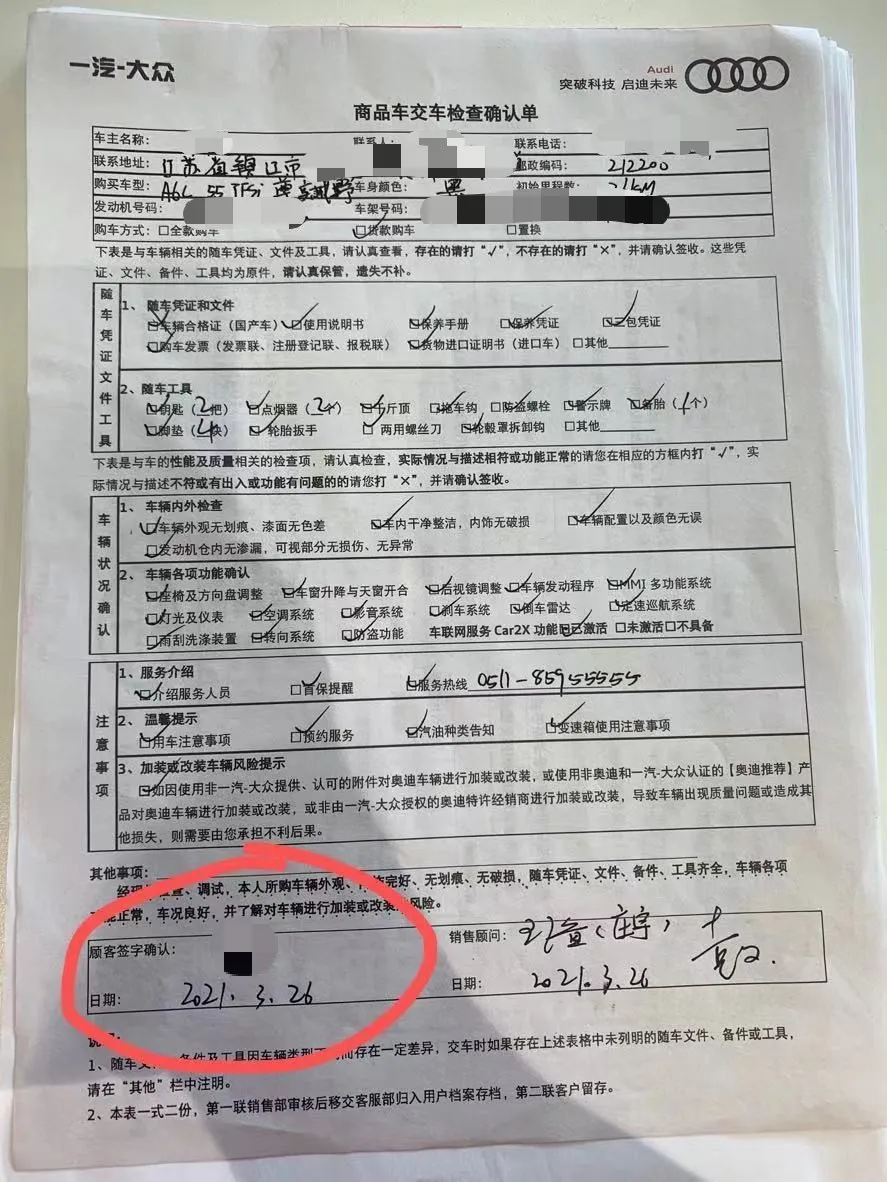 一汽-大众
Audi
突破科技 启迪未来
商品车交车检查确认单
车主名称: 联系人: 联系电话:
联系地址: 江苏省镇江市 邮政编码: 212200
购买车型: A6L 55 TFSi 车身颜色: 黑 初始里程数: 21KM
发动机号码: 车架号码:
购车方式: □全款购车 □贷款购车 □置换
下表是与车辆相关的随车凭证、文件及工具，请认真查看，存在的请打“√”，不存在的请打“×”，并请确认签收。这些凭
证、文件、备件、工具均为原件，请认真保管，遗失不补。
随车凭证文件工具
1、 随车凭证和文件
□车辆合格证（国产车） □使用说明书 □保养手册 □保养凭证 □三包凭证
□购车发票（发票联、注册登记联、报税联） □货物进口证明书（进口车） □其他
2、随车工具
□钥匙（2把） □点烟器（2个） □千斤顶 □拖车钩 □防盗螺栓 □警示牌 □备胎（1个）
□脚垫（4块） □轮胎扳手 □两用螺丝刀 □轮毂罩拆卸钩 □其他
下表是与车的性能及质量相关的检查项，请认真检查，实际情况与描述相符或功能正常的请您在相应的方框内打“√”，实
际情况与描述不符或有出入或功能有问题的的请您打“×”，并请确认签收。
车辆状况确认
1、 车辆内外检查
□车辆外观无划痕、漆面无色差 □车内干净整洁，内饰无破损 □车辆配置以及颜色无误
□发动机仓内无渗漏，可视部分无损伤、无异常
2、 车辆各项功能确认
□座椅及方向盘调整 □车窗升降与天窗开合 □后视镜调整 □车辆发动程序 □MMI 多功能系统
□灯光及仪表 □空调系统 □影音系统 □刹车系统 □倒车雷达 □定速巡航系统
□雨刮洗涤装置 □转向系统 □防盗功能 车联网服务 Car2X 功能□已激活 □未激活□不具备
注意事项
1、服务介绍
□介绍服务人员 □首保提醒 □服务热线 0511-85955555
2、 温馨提示
□用车注意事项 □预约服务 □汽油种类告知 □变速箱使用注意事项
3、加装或改装车辆风险提示
□如因使用非一汽-大众提供、认可的附件对奥迪车辆进行加装或改装，或使用非奥迪和一汽-大众认证的【奥迪推荐】产
品对奥迪车辆进行加装或改装，或非由一汽-大众授权的奥迪特许经销商进行加装或改装，导致车辆出现质量问题或造成其
他损失，则需要由您承担不利后果。
其他事项:
调试，本人所购车辆外观、完好、无划痕、无破损，随车凭证、文件、备件、工具齐全，车辆各项
能正常，车况良好，并了解对车辆进行加装或改装风险。
顾客签字确认: 销售顾问:
日期: 2021.3.26 日期: 2021.3.26
1、随车文件、备件及工具因车辆类型不同而存在一定差异，交车时如果存在上述表格中未列明的随车文件、备件或工具，
请在“其他”栏中注明。
2、本表一式二份，第一联销售部审核后移交客服部归入用户档案存档，第二联客户留存。